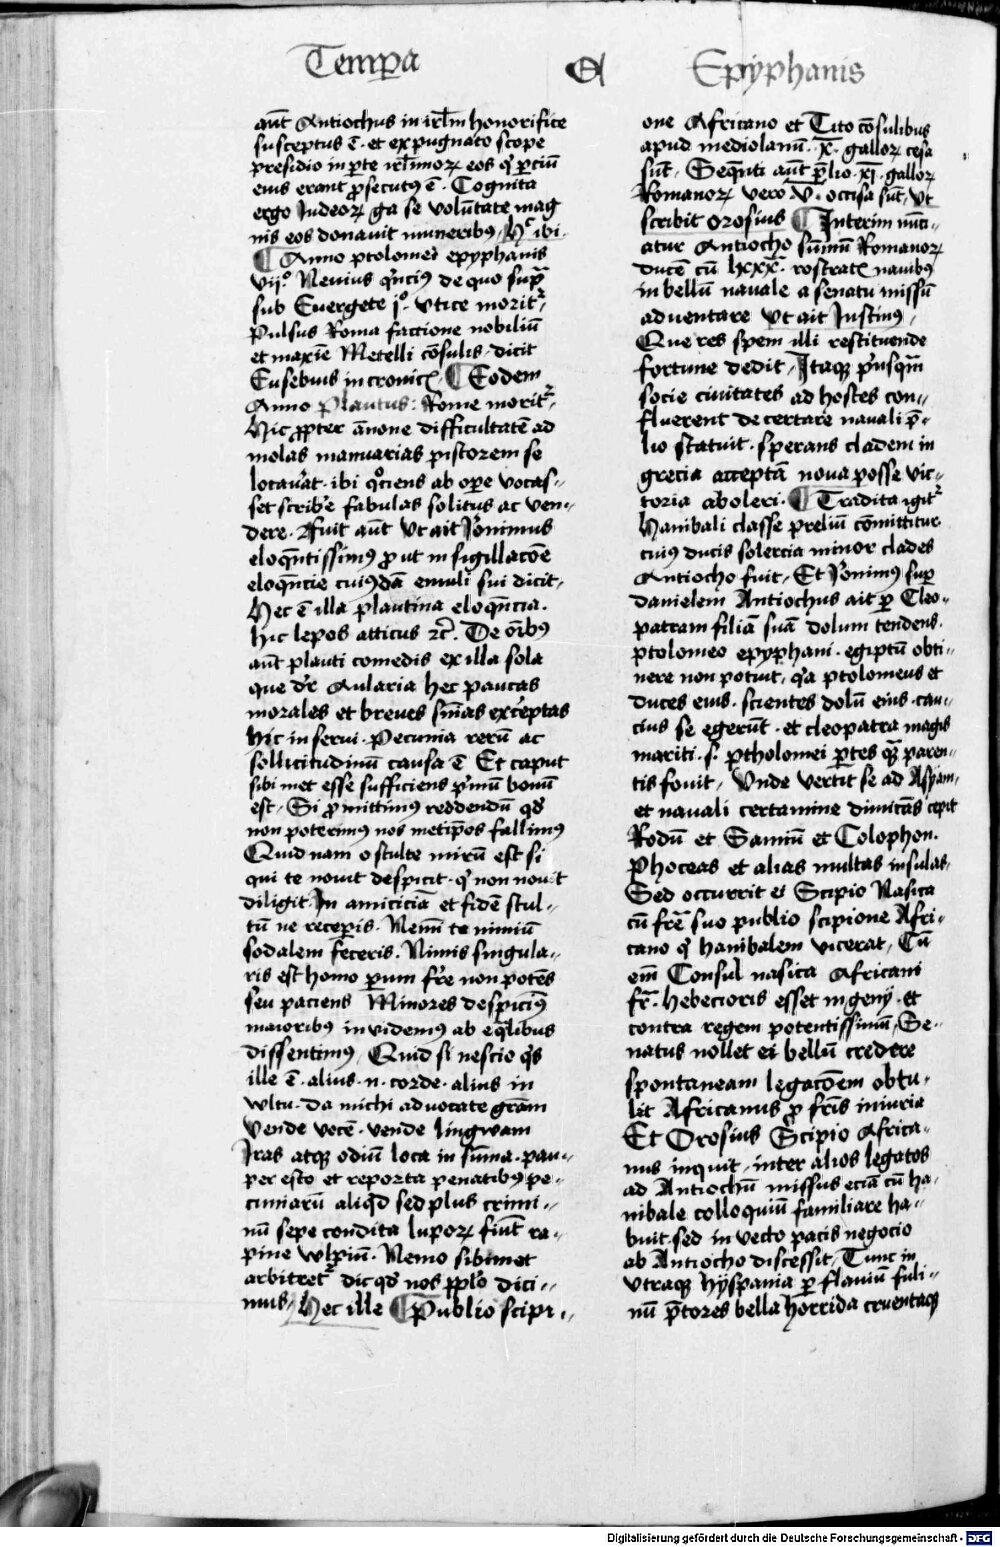 Temp̲a et Epyphanis
aūt Antiochus in irl̄m honorifice
susceptus ē · et expugnato scope
presidio in p̲te irl̄imoꝝ eos q̄ p̲ciū
eius erant p̲secutꝰ ē · Cognita
ergo Judeoꝝ ga se volūtate mag
nis eos donauit muneribꝰ, Hᶜ ibi·
¶ Anno ptolomei epyphanis
vijº· Neuius q̄nciꝰ de quo sup̄
sub Euergete jº · vtice moritr̄,
Pulsus Roma factione nobiliū
et maxīe Metelli cōsulis · dicit
Eusebius in cronicꝭ, ¶ Eodem
Anno Plautus: Rome moritr̄,
Hic ꝓpter ānone difficultatē ad
molas manuarias pistorem se
locau̓at · ibi qͦciens ab op̲e vocas-,
set scrib̓e fabulas solitus ac ven-,
dere · Fuit aūt vt ait Jeronimus
eloqn̄tissimꝰ ꝓut in sigillacōe
eloqn̄cie cuiꝰdā emuli sui dicit,
Hec ē illa plautina eloqn̄cia.
hic lepos atticus ꝛc̄. De oībꝰ
aūt plauti comedis ex illa sola
que dr̄ Aularia hec paucas
morales et breues sn̄ias exceptas
hic inserui · Pecunia rerū ac
sollicitudinū causa ē Et caput
sibimet esse sufficiens p̄mū bonū
est, Si ꝓmittimꝰ reddendū qd̓
non poterimꝰ nos metip̄os fallimꝰ
Quid nam o stulte mirū est si
qui te nouit despicit · q̄ non nouit
diligit In amiciciā et fidē stul-,
tū ne recep̲is · Nemī te nimiū
sodalem feceris. Nimis singula-,
ris est homo p̲um fr̄e non potēs
seu paciens Minores despiciꝰ
maioribꝰ inuidemꝰ ab eq̄libus
dissentimꝰ, Quid si nescio q̄s
ille ē · alius · n · corde · alius in
wltu · da michi aduocate grām
Vende vocē · vende lingwam
Iras atqꝫ odiū loca in sūma · pau-,
per esto et reporta penatibꝰ pe-,
cuniarū aliqd̓ sed plus crimi-,
nū sepe condita lupoꝝ fiūt ra-,
pine wlpiū. Nemo sibimet
arbitret̄ dic qd̓ nos pp̄lo dici-,
mus, Hec ille ¶ Publio scipi-,
one Africano et Tito cōsulibus
apud mediolanū · x̄ · galloꝝ cesa
sūt, Seqn̄ti aūt p̄lio · xi · galloꝝ
Romanoꝝ vero · v̄ · occisa sūt, vt
scribit Orosius ¶ Interim nūci-,
atur Antiocho sūmū Romanoꝝ
ducē cū lxxx · rostratꝭ nauibꝰ
in bellū nauale a senatu missū
aduentare vt ait Justinꝰ,
Que res spem illi restituende
fortune dedit, Itaqꝫ p̓usqm̄
socie ciuitates ad hostes con-,
fluerent decertare nauali p̄-
lio statuit · sperans cladem in
grecia acceptā noua posse vic-
toria aboleri · ¶ Tradita igitr̄
Hanibali classe preliū cōmittitur
cuiꝰ ducis solercia minor clades
Antiocho fuit, Et Jeronimꝰ sup̲
danielem Antiochus ait p̲ Cleo-,
patram filiā suā dolum tendens.
ptolomeo epyphani · egiptū obti-,
nere non potuit, q̓a ptolomeus et
duces eius · scientes dolū eius · cau-,
cius se egerūt · et cleopatra magis
mariti · s · ptholomei p̲tes qm̄ paren-,
tis fouit, Unde vertit se ad Asyam,
et nauali certamine dimicās cepit
Rodū et Samū et Colophon.
Phoceas et alias multas insulas,
Sed occurrit ei Scipio Nasica
cū fr̄e suo publio scipione Afri-,
cano q̄ hanibalem vicerat, Cū
em̄ Consul nasica Africani
fr̄ · hebecioris esset ingenij · et
contra regem potentissimū, Se-
natus nollet ei bellū credere
spontaneam legacōem obtu-,
lit Africanus ꝓ fr̄is iniuria
Et Orosius Scipio Africa-
nus inquit, inter alios legatos
ad Antiochū missus eciā cū ha-,
nibale colloquiū familiare ha-,
buit · sed infecto pacis negocio
ab Antiocho discessit, Tunc in
vtraqꝫ hyspania p̲ flauiū fuli-,
nū p̄tores bella horrida cruentaqꝫ
Digitalisierung gefördert durch die Deutsche Forschungsgemeinschaft - DFG